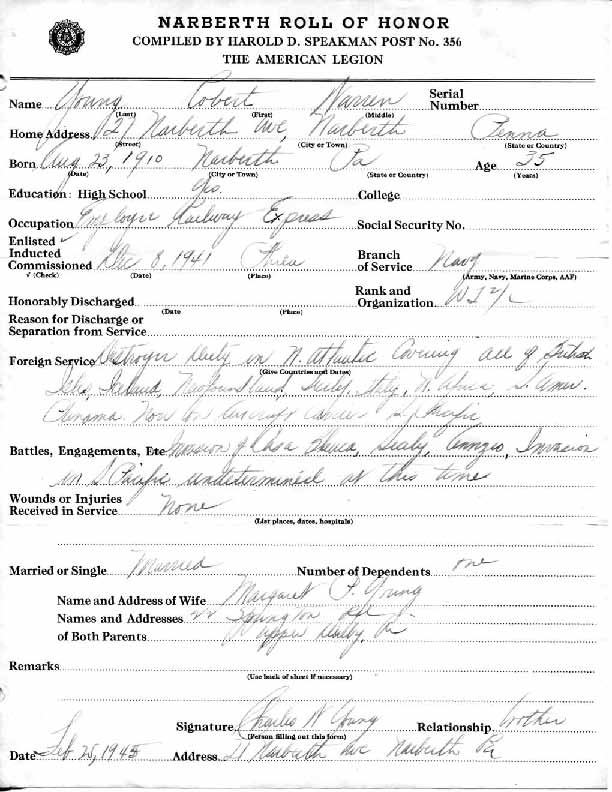 NARBERTH ROLL OF HONOR
COMPILED BY HAROLD D. SPEAKMAN POST No. 356
THE AMERICAN LEGION
Name Young Robert Warren Serial Number
(Last) (First) (Middle)
Home Address 121 Narberth Ave, Narberth Penna
(Street) (City or Town) (State or Country)
Born Aug 23, 1910 Narberth Pa Age 35
(Date) (City or Town) (State or Country) (Years)
Education: High School Yes. College
Occupation Employee Railway Express Social Security No.
Enlisted ✓
Inducted
Commissioned Dec 8, 1941 Phila Branch of Service Navy
√ (Check) (Date) (Place) (Army, Navy, Marine Corps, AAF)
Honorably Discharged Rank and Organization
(Date (Place)
Reason for Discharge or
Separation from Service
Foreign Service Destroyer Duty in N. Atlantic Covering all of British
(Give Countries and Dates)
Isles, Iceland, Newfoundland, Sicily, Italy, N. Africa, S. Amer.
Panama. Now on Aircraft Carrier S. Pacific
Battles, Engagements, Etc Invasion of Casa Blanca, Sicily, Anzio, Invasion
in S Pacific undetermined at this time
Wounds or Injuries
Received in Service None
(List places, dates, hospitals)
Married or Single Married Number of Dependents one
Name and Address of Wife Margaret F. Young
Names and Addresses
of Both Parents Upper Darby, Pa
Remarks
(Use back of sheet if necessary)
Signature Charles W Young Relationship Brother
(Person filling out this form)
Date Feb 25, 1945 Address Narberth Ave Narberth Pa